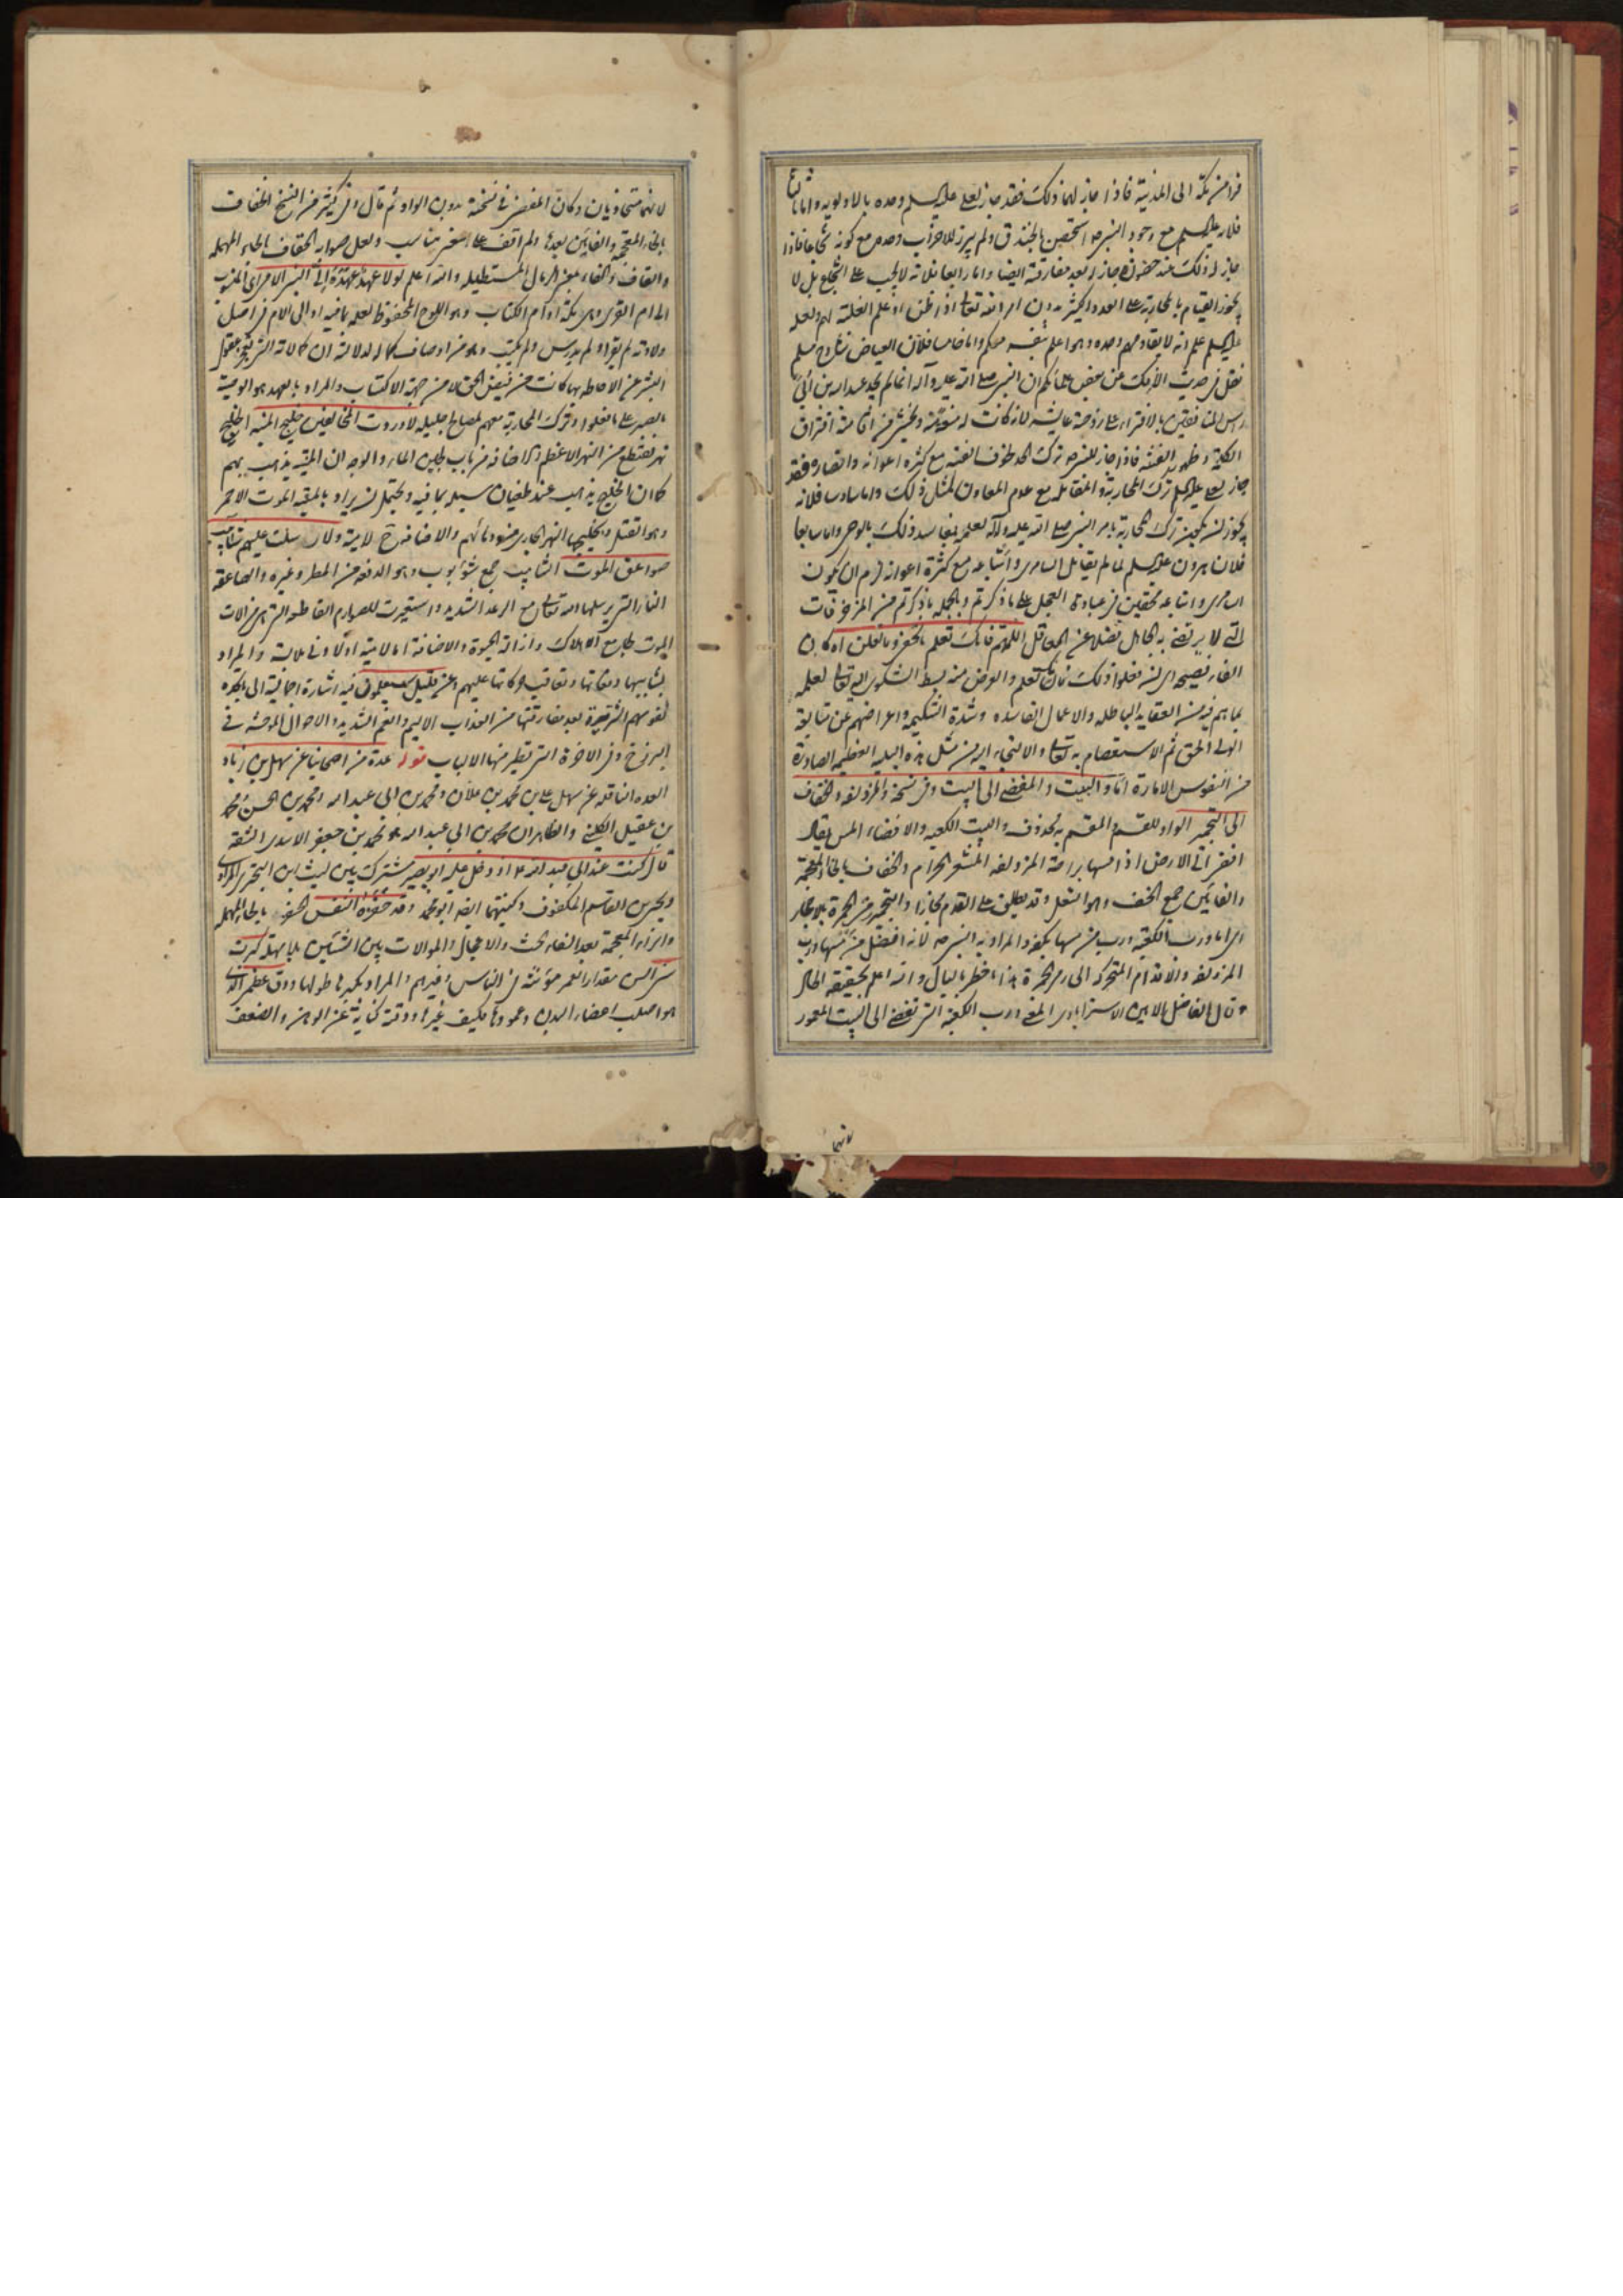 فرا من مكة الى المدينة فاذا جاز لهما ذلك فقد جاز لعلى عليه السلم وحده بالاولوية واما ثالثا
فلانه عليه السلم مع وجود النبى ص استحصن بالخندق ولم يبرز للاحزاب وحده مع كونه شجاعا فاذا
جاز له ذلك عند حضوره جاز له بعد مفارقته ايضا واما رابعا فلانه لا يجب على الشجاع بل لا
يجوز القيام بالمحاربة على العدد الكثير بدون امر الله تعالى اذا ظن او علم الغلبة لهم ولعله
عليه السلم علم انه لا يقاومهم وحده وهو اعلم بنفسه منكم واما خامسا فلان العياض شارح مسلم
نقل فى حديث الافك عن بعض علمائكم ان النبى صلى الله عليه وآله انما لم يحد عبد الله بن ابى
راس المنافقين بالافتراء على زوجته عايشه لانه كانت له منعة ويخشى من اقامته افتراق
الكلمة وظهور الفتنة فاذا جاز للنبى ص ترك الحد لخوف الفتنة مع كثرة اعوانه وانصاره فقد
جاز لعلى عليه السلم ترك المحاربة والمقاتلة مع عدم المعاون لمثل ذلك واما سادسا فلانه
يجوز ان يكون ترك المحاربة بامر النبى صلى الله عليه وآله لعلمه بمفاسد ذلك بالوحى واما سابعا
فلان هرون عليه السلم لما لم يقاتل السامرى واتباعه مع كثرة اعوانه لزم ان يكون
السامرى واتباعه محقين فى عبادة العجل على ما ذكرتم وبالجملة ما ذكرتم من المزخرفات
التى لا يرتضى به الجاهل فضلا عن العاقل اللهم فانك تعلم ما نخفى وما نعلن اه كان
الفاء فصيحة اى ان فعلوا ذلك فانك تعلم والغرض منه بسط الشكوى اليه تعالى لعلمه
بما هم فيه من العقايد الباطلة والاعمال الفاسدة وشدة الشكيمة واعراضهم عن متابعة
الولى الحق ثم الاستعصام به تعالى والالتجاء اليه من مثل هذه البلية العظيمة الصادرة
من النفوس الامارة اما والبيت والمفضى الى البيت وفى نسخة والمزدلفة والخفاف
الى التجمير الواو للقسم والمقسم به محذوف والبيت الكعبة والافضاء المس يقال
افضى الى الارض اذا مسها براحته المزدلفة المشعر الحرام والخفاف بالخاء المعجمة
والفائين جمع الخف وهو النعل وقد يطلق على القدم مجازا والتجمير رمى الجمرة بالاحجار
اى اما ورب الكعبة ورب من مسها بكفه والمراد به النبى ص لانه افضل من مسها ورب
المزدلفة والاقدام المتحركة الى رمى الجمرة هذا ما خطر بالبال والله اعلم بحقيقة الحال
وقال الفاضل الامين الاسترابادى المعنى ورب الكعبة التى تفضى الى البيت المعمور
لانهما
لانهما متحاذيان وكان المفضى فى نسخته بدون الواو ثم قال وفى كثير من النسخ الخفاف
بالخاء المعجمة والفائين بعدها ولم اقف على معنى يناسب ولعل صوابه الحقاف بالحاء المهملة
والقاف والفاء بمعنى الرمال المستطيلة والله اعلم لولا عهد عهده الى النبى الامى اى المنسوب
الى ام القرى وهى مكة او ام الكتاب وهو اللوح المحفوظ لعلمه بما فيه او الى الام فى اصل
ولادته لم يقرا ولم يدرس ولم يكتب وهو من اوصاف كماله لدلالته ان كمالاته التى يعجز عقول
البشر عن الاحاطة بها كانت من فيض الحق لا من جهة الاكتساب والمراد بالعهد هو الوصية
بالصبر على ما فعلوا وترك المحاربة معهم لمصالح جليلة لاوردت المخالفين خليج المنية الخليج
نهر يقتطع من النهر الاعظم والاضافة من باب لجين الماء والوجه ان المنية يذهب بهم
كما ان الخليج يذهب عند طغيان سيله بما فيه ويحتمل ان يراد بالمنية الموت الاحمر
وهو القتل وبخليجها النهر الجارى من دمائهم والاضافة ح لامية ولارسلت عليهم شآبيب
صواعق الموت الشآبيب جمع شؤبوب وهو الدفعة من المطر وغيره والصاعقة
النار التى يرسلها الله تعالى مع الرعد الشديد واستعيرت للصوارم القاطعة التى هى آلات
الموت بجامع الاهلاك وازالة الحيوة والاضافة لامية او لادنى ملابسة والمراد
بشآبيبها دفعاتها وتعاقب حركاتها عليهم وعن قليل سيعلمون فيه اشارة اجمالية الى ما تجده
نفوسهم الشريرة بعد مفارقتها من العذاب الاليم والغم الشديد والاحوال الموحشة فى
البرزخ وفى الاخرة التى تطير منها الالباب قوله عدة من اصحابنا عن سهل بن زياد
العدة الناقلة عن سهل على بن محمد بن علان ومحمد بن ابى عبد الله ومحمد بن الحسن ومحمد
بن عقيل الكلينى والظاهر ان محمد بن ابى عبد الله هو محمد بن جعفر الاسدى الثقة
قال كنت عند ابى عبد الله ع اذ دخل عليه ابو بصير مشترك بين ليث ابن البخترى المرادى
ويحيى بن القاسم المكفوف وكنيتهما ايضا ابو محمد وقد حفزه النفس الحفز بالحاء المهملة
والزاء المعجمة بعد الفاء الحث والاعجال والموالات بين الشيئين بلا مهلة كبرت
سنى السن مقدار العمر مؤنثة فى الناس وغيرهم والمراد بكبرها طولها ودق عظمى الذى
هو اصلب اعضاء البدن وعمودها فكيف غيره ودقته كناية عن الوهن والضعف